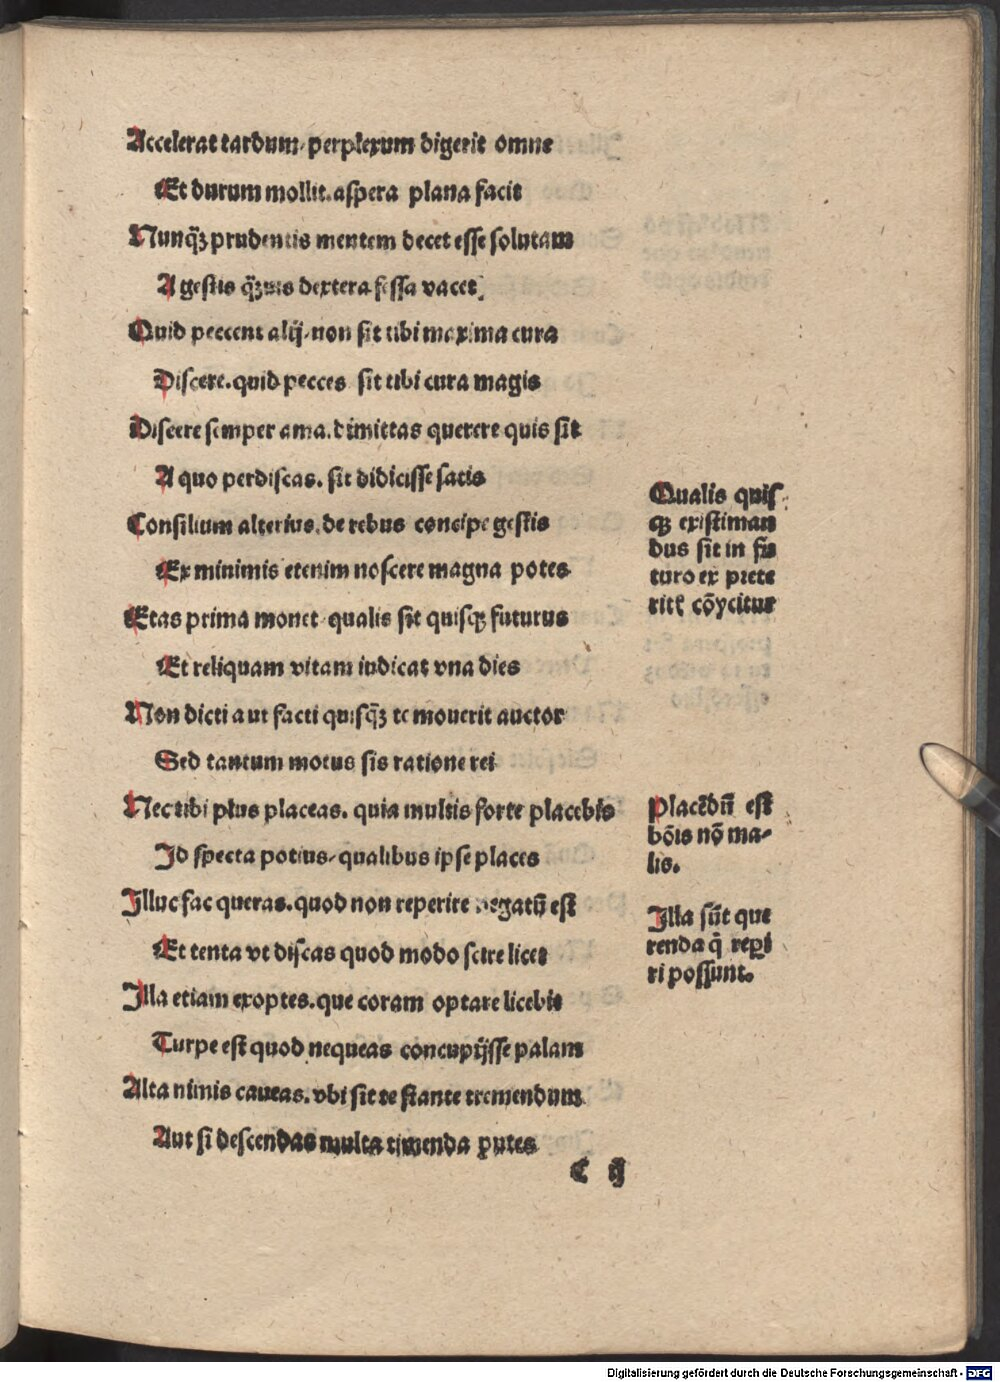 Accelerat tardum, perplexum digerit omne
Et durum mollit. aspera plana facit
Nunqꝫ prudentis mentem decet esse solutam
A gestis qꝫuis dextera fessa vacet
Quid peccent alij, non sit tibi maxima cura
Discere. quid pecces sit tibi cura magis
Discere semper ama. dimittas querere quis sit
A quo perdiscas. sit didicisse satis
Consilium alterius. de rebus concipe gestis
Ex minimis etenim noscere magna potes
Etas prima monet qualis sit quisqꝫ futurus
Et reliquam vitam iudicat vna dies
Non dicti aut facti quisqꝫ te mouerit auctor
Sed tantum motus sis ratione rei
Nec tibi plus placeas. quia multis forte placebis
Id specta potius, qualibus ipse places
Illuc fac queras. quod non reperire negatū est
Et tenta vt discas quod modo scire licet
Illa etiam exoptes. que coram optare licebit
Turpe est quod nequeas concupijsse palam
Alta nimis caueas. vbi sit te stante tremendum
Aut si descendas multa timenda putes
c ij
Qualis quis
qꝫ existiman
dus sit in fu
turo ex prete
ritꝭ cōycitur
Placēdū est
bōis nō ma-
lis.
Illa sūt que
renda q̄ repi
ri possunt.
Digitalisierung gefördert durch die Deutsche Forschungsgemeinschaft - DFG